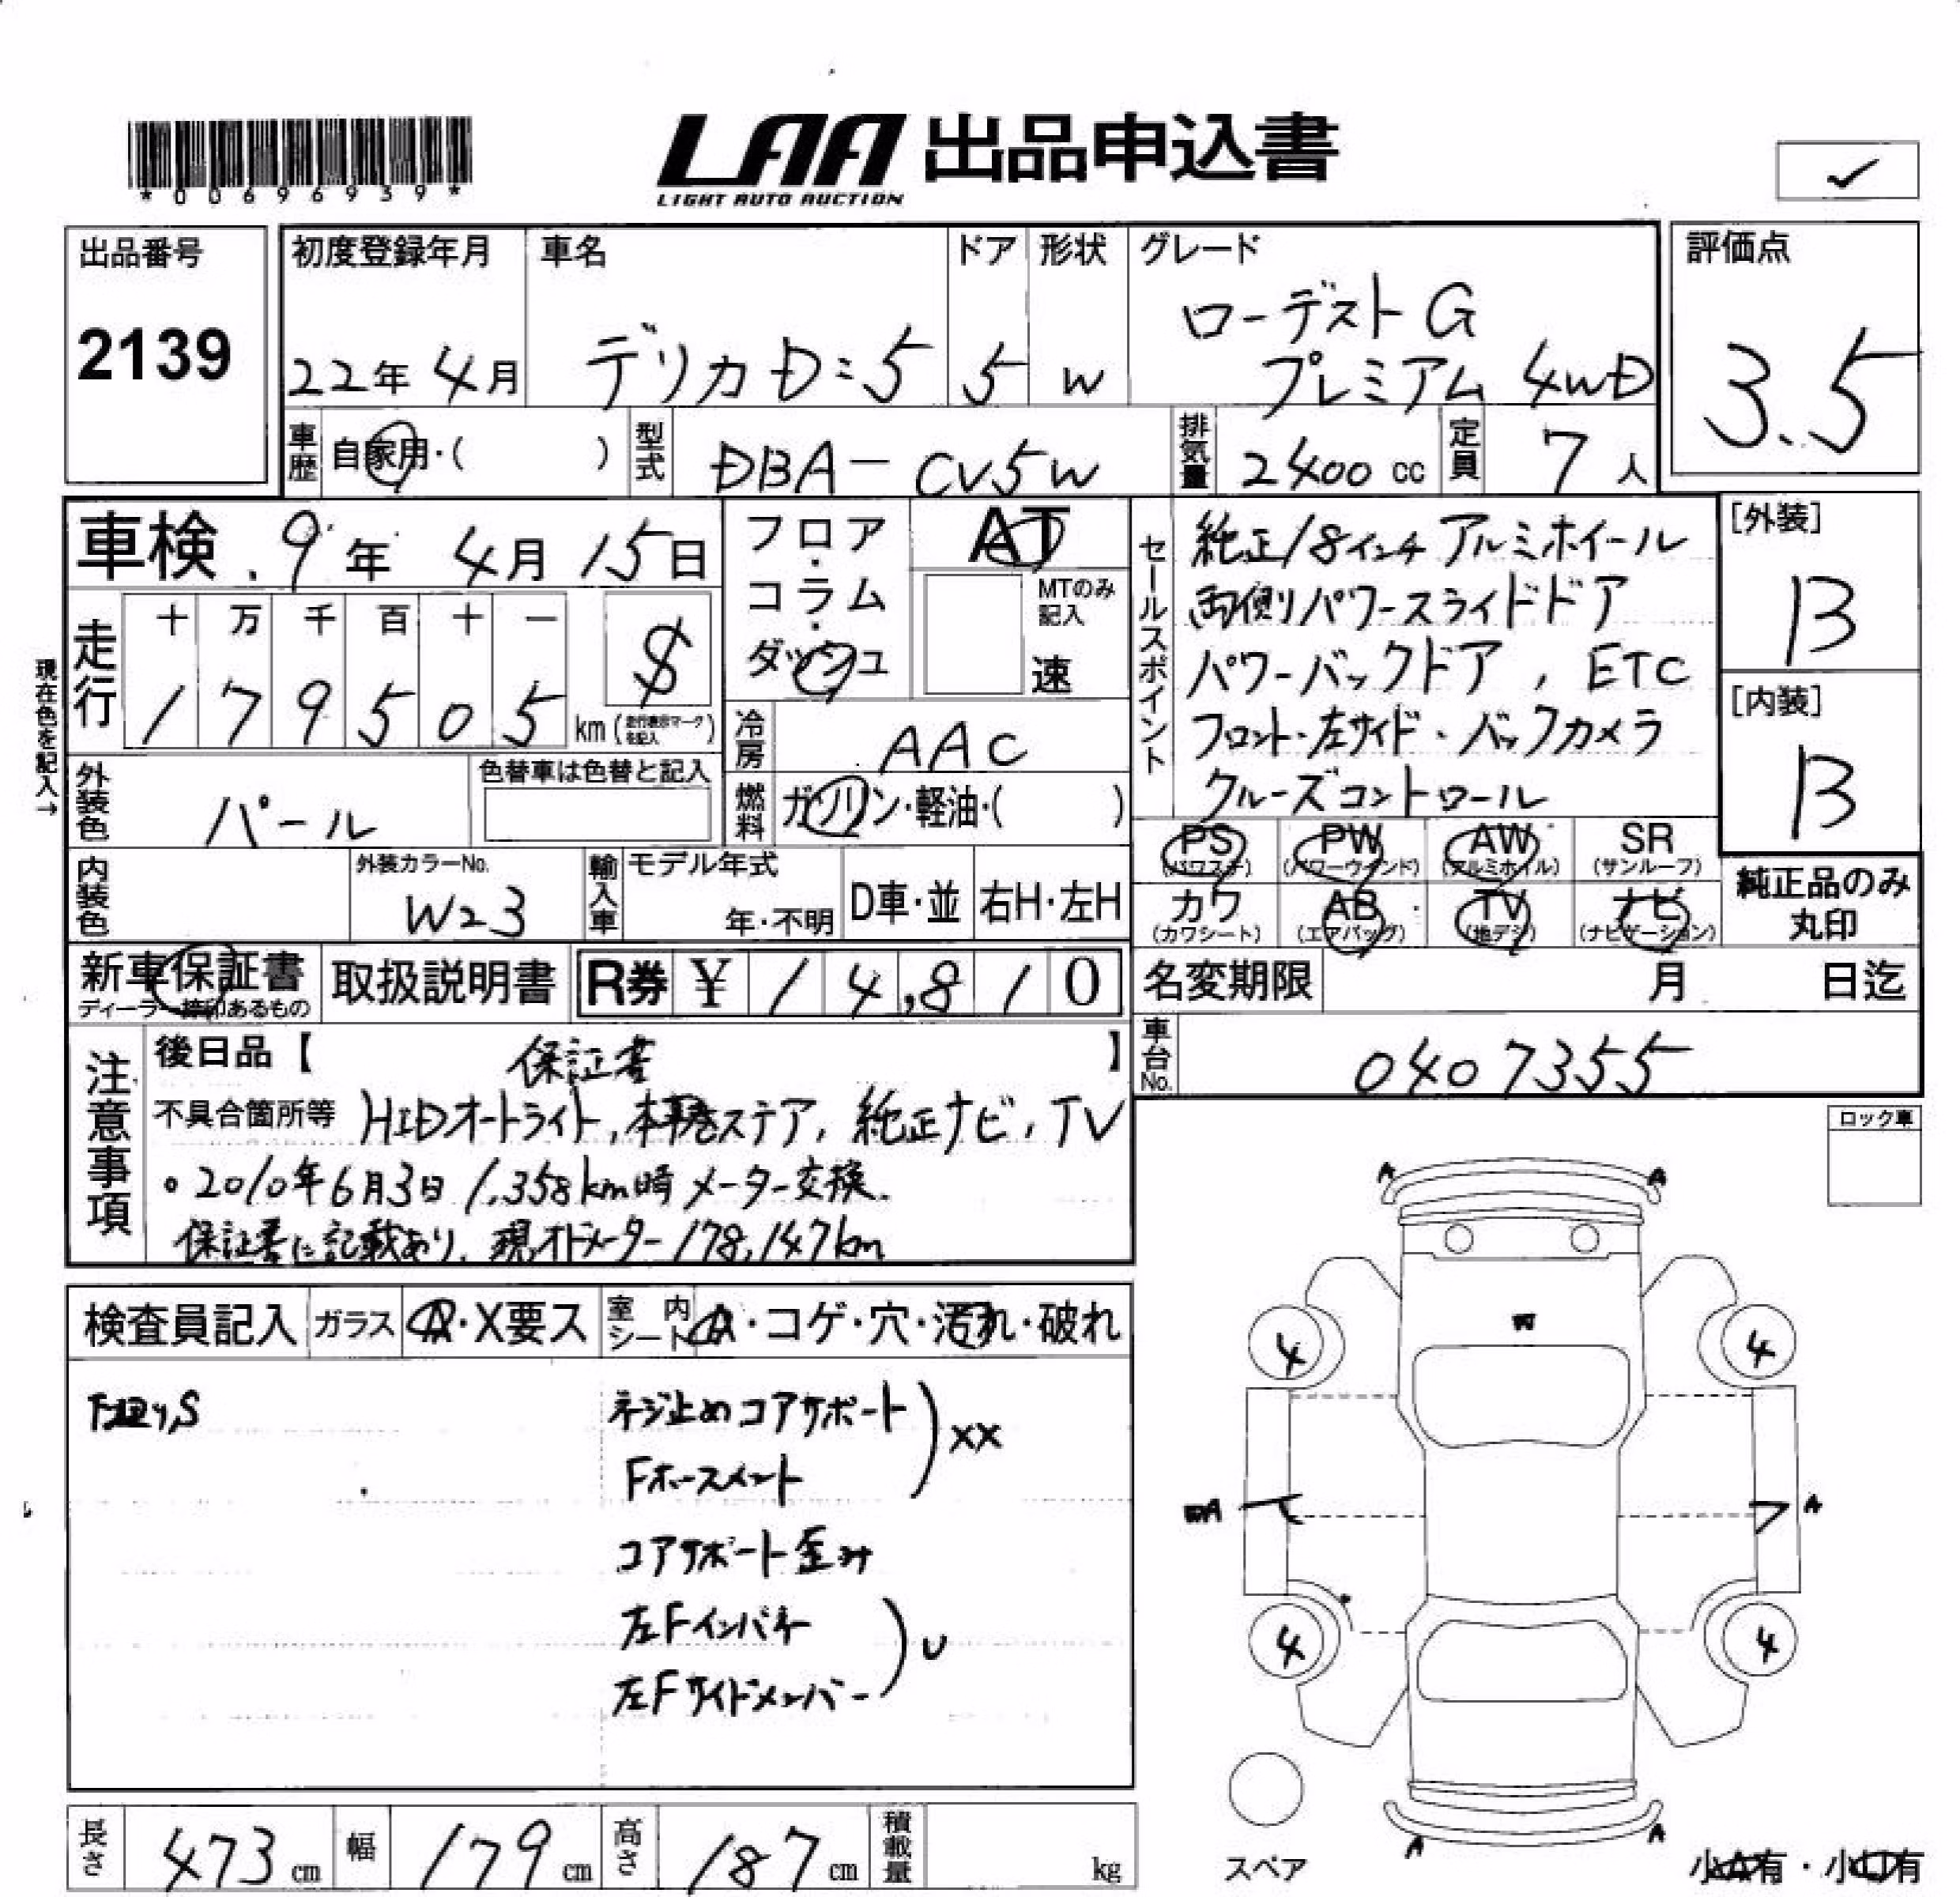 *00696939*
LAA 出品申込書
LIGHT AUTO AUCTION
✓
出品番号
2139
初度登録年月
22年 4月
車名
デリカD:5
ドア
5
形状
W
グレード
ローデストG
プレミアム 4WD
評価点
3.5
車歴 自家用・( )
型式 DBA-CV5W
排気量 2400 cc
定員 7 人
車検 9年 4月 15日
フロア・コラム・ダッシュ
AT
MTのみ記入
速
セールスポイント
純正18インチ アルミホイール
両側パワースライドドア
パワーバックドア, ETC
フロント・左サイド・バックカメラ
クルーズコントロール
[外装]
B
[内装]
B
現在色を記入→
走行
十 万 千 百 十 一
1 7 9 5 0 5 km (走行表示マークを記入)
$
冷房 AAC
燃料 ガソリン・軽油・( )
外装色 パール
色替車は色替と記入
内装色
外装カラーNo.
W23
輸入車
モデル年式
年・不明
D車・並
右H・左H
PS (パワステ)
PW (パワーウインド)
AW (アルミホイル)
SR (サンルーフ)
カワ (カワシート)
AB (エアバッグ)
TV (地デジ)
ナビ (ナビゲーション)
純正品のみ丸印
新車保証書
ディーラー捺印あるもの
取扱説明書
R券 ¥ 14,810
名変期限 月 日迄
車台No. 0407355
注意事項
後日品【 保証書 】
不具合箇所等 HIDオートライト, 本革巻ステア, 純正ナビ, TV
○2010年6月3日 1,358km時メーター交換.
保証書に記載あり. 現オドメーター178,147km
ロック車
検査員記入
ガラス A・X要ス
室内シート A・コゲ・穴・汚れ・破れ
ネジ止めコアサポート
Fホースメント
XX
コアサポート歪み
左Fインパネ
左Fサイドメンバー
U
A A
W
4 4
A
4 4
A A
スペア
小A有・小U有
長さ 473 cm
幅 179 cm
高さ 187 cm
積載量 kg